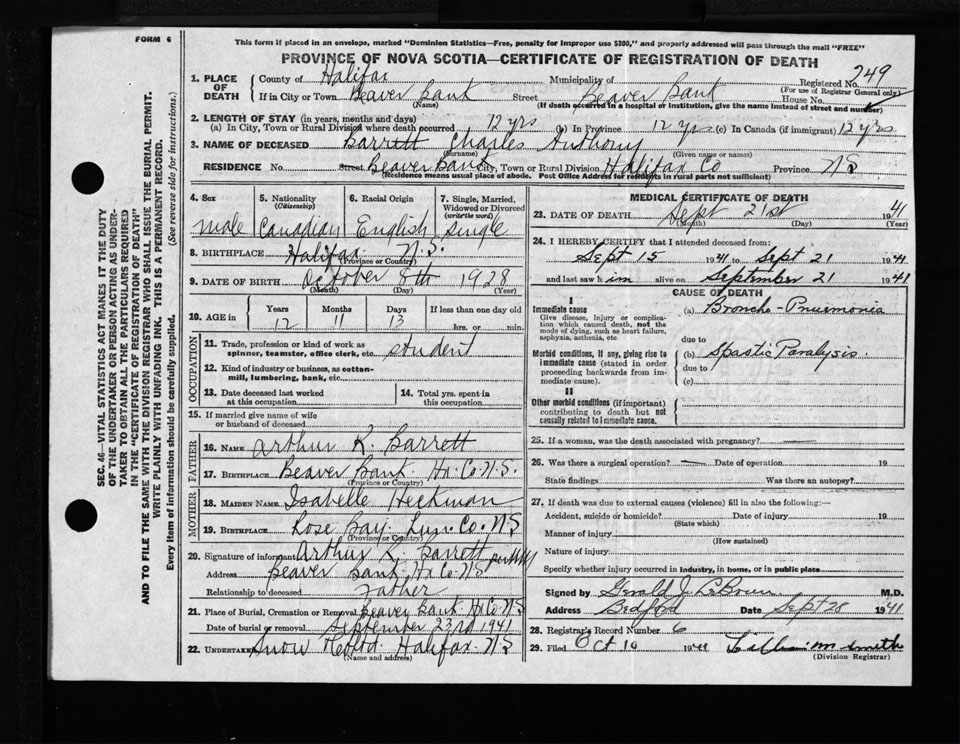 FORM 6
This form if placed in an envelope, marked "Dominion Statistics—Free, penalty for improper use $300," and properly addressed will pass through the mail "FREE"
PROVINCE OF NOVA SCOTIA—CERTIFICATE OF REGISTRATION OF DEATH
1. PLACE OF DEATH County of Halifax Municipality of Registered No. 749
(For use of Registrar General only)
If in City or Town Beaver Bank Street Beaver Bank House No.
(Name) (If death occurred in a hospital or institution, give the name instead of street and number)
2. LENGTH OF STAY (in years, months and days)
(a) In City, Town or Rural Division where death occurred 12 yrs (b) In Province 12 yrs (c) In Canada (if immigrant) 12 yrs
3. NAME OF DECEASED Barrett Charles Anthony
(Surname) (Given name or names)
RESIDENCE No. Street Beaver Bank City, Town or Rural Division Halifax Co Province N S
(Residence means usual place of abode. Post Office Address for residents in rural parts not sufficient)
4. Sex 5. Nationality (Citizenship) 6. Racial Origin 7. Single, Married, Widowed or Divorced (write the word)
male Canadian English single
8. BIRTHPLACE Halifax N. S.
(Province or Country)
9. DATE OF BIRTH October 8th 1928
(Month) (Day) (Year)
10. AGE in Years Months Days If less than one day old
12 11 13 hrs. or min.
OCCUPATION
11. Trade, profession or kind of work as spinner, teamster, office clerk, etc. student
12. Kind of industry or business, as cotton-mill, lumbering, bank, etc.
13. Date deceased last worked at this occupation 14. Total yrs. spent in this occupation
15. If married give name of wife or husband of deceased
FATHER
16. NAME Arthur K. Barrett
17. BIRTHPLACE Beaver Bank Hx. Co. N. S.
(Province or Country)
MOTHER
18. MAIDEN NAME Isabelle Heckman
19. BIRTHPLACE Rose Bay Lun. Co. N S
(Province or Country)
20. Signature of informant Arthur K. Barrett
Address Beaver Bank, Hx Co N S
Relationship to deceased Father
21. Place of Burial, Cremation or Removal Beaver Bank Hx Co N S
Date of burial or removal September 23rd 1941
22. UNDERTAKER Snow & Co Ltd. Halifax N S
(Name and address)
MEDICAL CERTIFICATE OF DEATH
23. DATE OF DEATH Sept 21st 1941
(Month) (Day) (Year)
24. I HEREBY CERTIFY that I attended deceased from:
Sept 15 1941 to Sept 21 1941
and last saw him alive on September 21 1941
CAUSE OF DEATH
I
Immediate cause
Give disease, injury or complication which caused death, not the mode of dying, such as heart failure, asphyxia, asthenia, etc
(a) Broncho-Pnuemonia
due to
Morbid conditions, if any, giving rise to immediate cause (stated in order proceeding backwards from immediate cause).
(b) Spastic Paralysis.
due to
(c)
II
Other morbid conditions (if important) contributing to death but not causally related to immediate cause.
25. If a woman, was the death associated with pregnancy?
26. Was there a surgical operation? — Date of operation 19
State findings Was there an autopsy?
27. If death was due to external causes (violence) fill in also the following:—
Accident, suicide or homicide? Date of injury 19
(State which)
Manner of injury
(How sustained)
Nature of injury
Specify whether injury occurred in industry, in home, or in public place
Signed by Gerald J. LeBrun M.D.
Address Bedford Date Sept 28 1941
28. Registrar's Record Number 6
29. Filed Oct 10 1941 Lillian M Smith
(Division Registrar)
SEC. 46—VITAL STATISTICS ACT MAKES IT THE DUTY
OF THE UNDERTAKER OR PERSON ACTING AS UNDER-
TAKER TO OBTAIN ALL THE PARTICULARS REQUIRED
IN THE "CERTIFICATE OF REGISTRATION OF DEATH"
AND TO FILE THE SAME WITH THE DIVISION REGISTRAR WHO SHALL ISSUE THE BURIAL PERMIT.
WRITE PLAINLY WITH UNFADING INK. THIS IS A PERMANENT RECORD.
Every item of information should be carefully supplied. (See reverse side for instructions.)